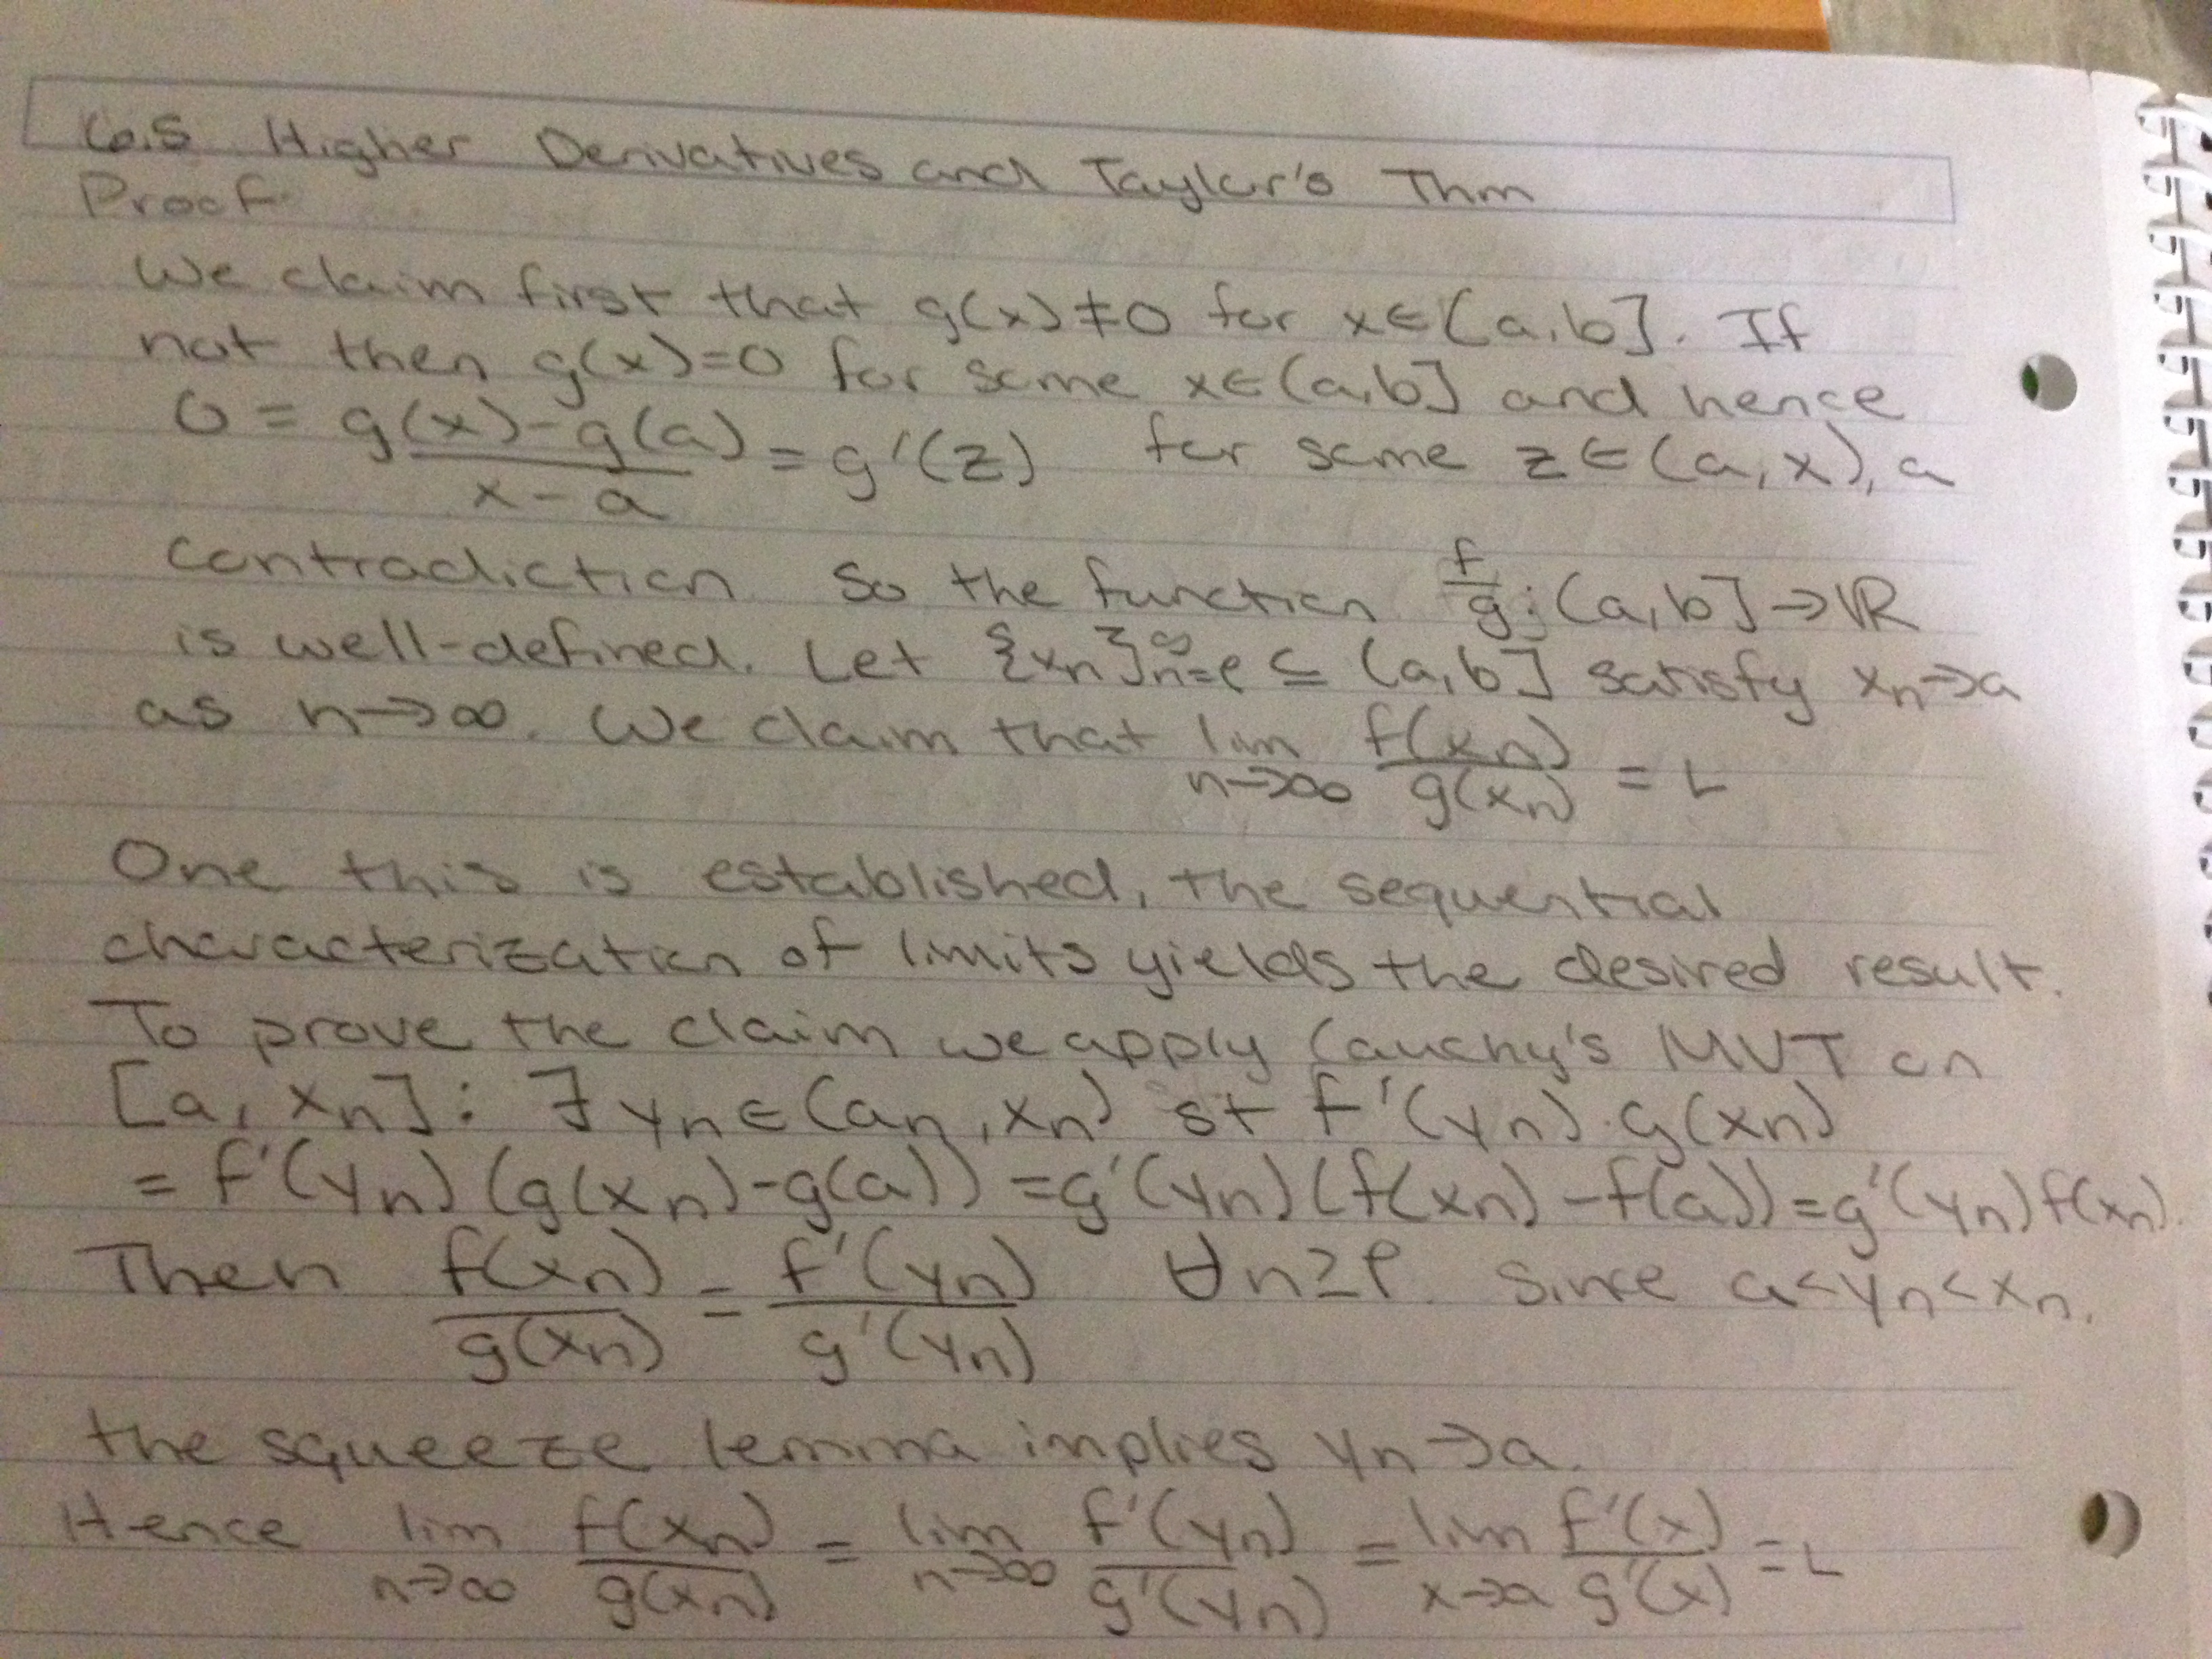 6.5 Higher Derivatives and Taylor's Thm
Proof
We claim first that g(x)≠0 for x∈(a,b]. If
not then g(x)=0 for some x∈(a,b] and hence
0 = \frac{g(x)-g(a)}{x-a} = g'(z) for some z∈(a,x), a
contradiction. So the function \frac{f}{g}: (a,b]→ℝ
is well-defined. Let {xₙ}_{n=ℓ}^∞ ⊆ (a,b] satisfy xₙ→a
as n→∞. We claim that \lim_{n→∞} \frac{f(xₙ)}{g(xₙ)} = L
One this is established, the sequential
characterization of limits yields the desired result.
To prove the claim we apply Cauchy's MVT on
[a, xₙ]: ∃ yₙ∈(aₙ, xₙ) st f'(yₙ)·g(xₙ)
= f'(yₙ)(g(xₙ)-g(a)) = g'(yₙ)(f(xₙ)-f(a)) = g'(yₙ)f(xₙ).
Then \frac{f(xₙ)}{g(xₙ)} = \frac{f'(yₙ)}{g'(yₙ)} ∀n≥ℓ. Since a<yₙ<xₙ,
the squeeze lemma implies yₙ→a.
Hence \lim_{n→∞} \frac{f(xₙ)}{g(xₙ)} = \lim_{n→∞} \frac{f'(yₙ)}{g'(yₙ)} = \lim_{x→a} \frac{f'(x)}{g'(x)} = L